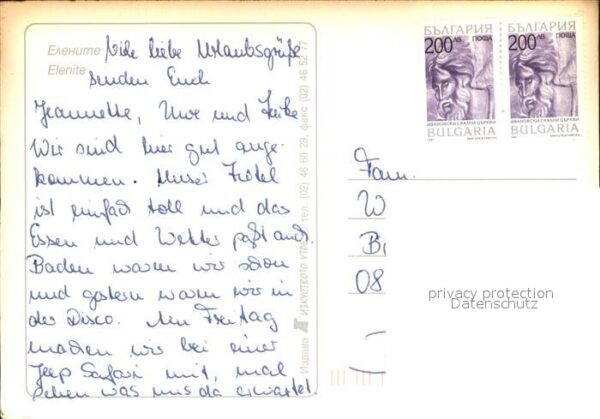 Елените
Elenite
Viele liebe Urlaubsgrüße
senden Euch
Jeannette, Uwe und Heike
Wir sind hier gut ange-
kommen. Unser Hotel
ist einfach toll und das
Essen und Wetter paßt auch.
Baden waren wir schon
und gestern waren wir in
der Disco. Am Freitag
machen wir bei einer
Jeep Safari mit, mal
sehen was uns da erwartet.
Издава ИЗКУСТВОТО тел. (02) 46 60 29, факс (02) 46 52 77
БЪЛГАРИЯ
200 ЛВ. ПОЩА
ИВАНОВСКИ СКАЛНИ ЦЪРКВИ
BULGARIA
БЪЛГАРИЯ
200 ЛВ. ПОЩА
ИВАНОВСКИ СКАЛНИ ЦЪРКВИ
BULGARIA
Fam.
W
B
08
privacy protection
Datenschutz